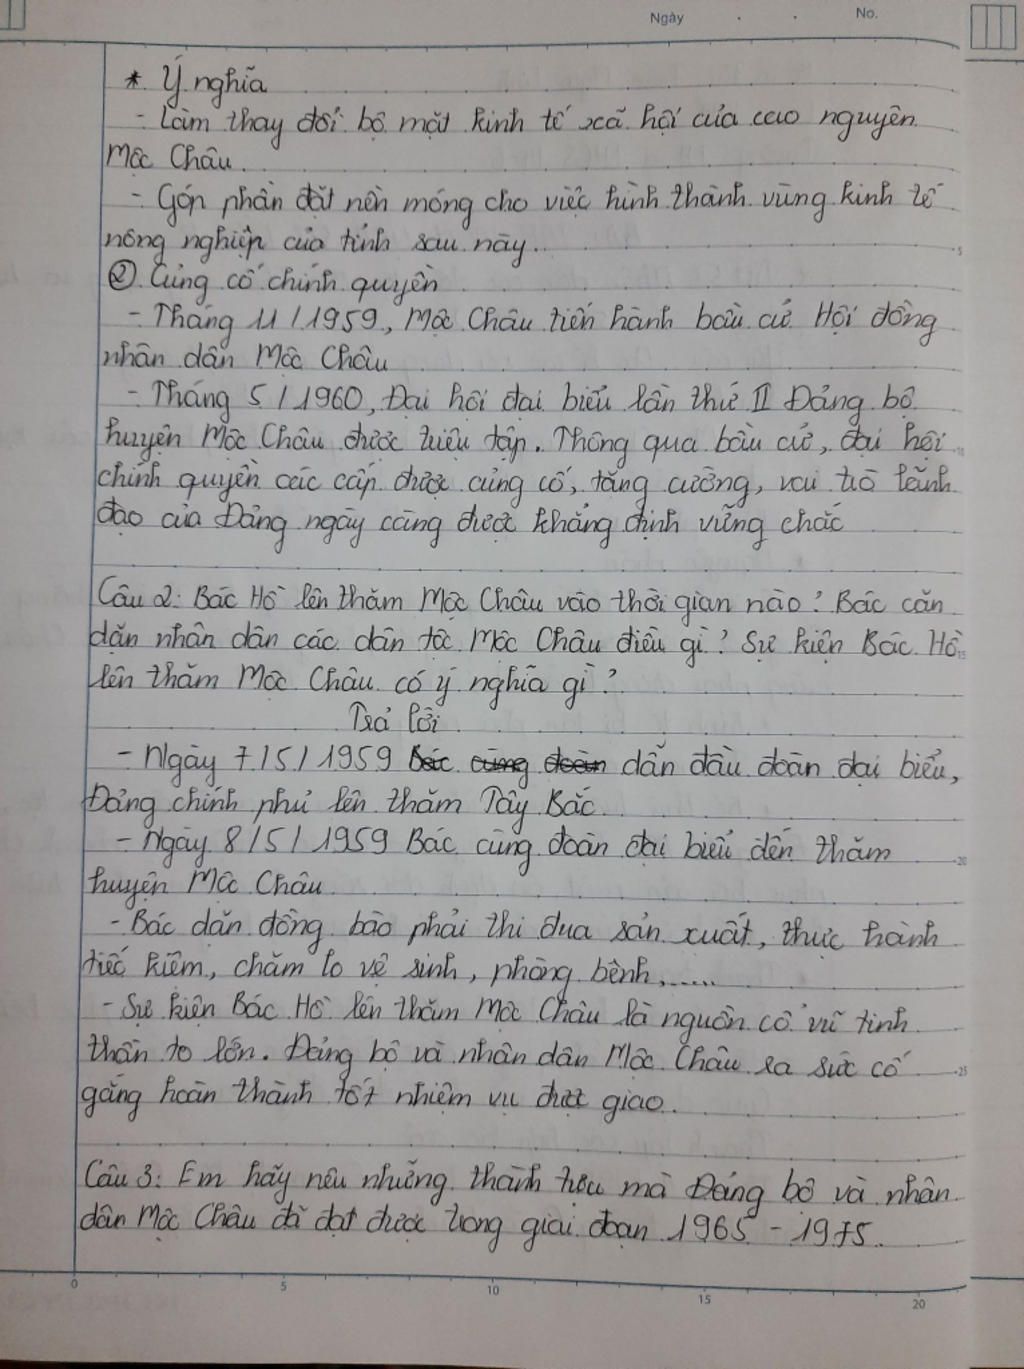 Ngày . . No.
* Ý nghĩa
- Làm thay đổi bộ mặt kinh tế xã hội của cao nguyên
Mộc Châu
- Góp phần đặt nền móng cho việc hình thành vùng kinh tế
nông nghiệp của tỉnh sau này.
② Củng cố chính quyền
- Tháng 11/1959, Mộc Châu tiến hành bầu cử Hội đồng
nhân dân Mộc Châu
- Tháng 5/1960, Đại hội đại biểu lần thứ II Đảng bộ
huyện Mộc Châu được triệu tập. Thông qua bầu cử, đại hội
chính quyền các cấp được củng cố, tăng cường, vai trò lãnh
đạo của Đảng ngày càng được khẳng định vững chắc
Câu 2: Bác Hồ lên thăm Mộc Châu vào thời gian nào? Bác căn
dặn nhân dân các dân tộc Mộc Châu điều gì? Sự kiện Bác Hồ
lên thăm Mộc Châu có ý nghĩa gì?
Trả lời
- Ngày 7/5/1959 Bác cùng đoàn dẫn đầu đoàn đại biểu,
Đảng chính phủ lên thăm Tây Bắc
- Ngày 8/5/1959 Bác cùng đoàn đại biểu đến thăm
huyện Mộc Châu
- Bác dặn đồng bào phải thi đua sản xuất, thực hành
tiếc kiệm, chăm lo vệ sinh, phòng bệnh,.....
- Sự kiện Bác Hồ lên thăm Mộc Châu là nguồn cổ vũ tinh
thần to lớn. Đảng bộ và nhân dân Mộc Châu ra sức cố
gắng hoàn thành tốt nhiệm vụ được giao.
Câu 3: Em hãy nêu những thành tựu mà Đảng bộ và nhân
dân Mộc Châu đã đạt được trong giai đoạn 1965 - 1975.
0 5 10 15 20